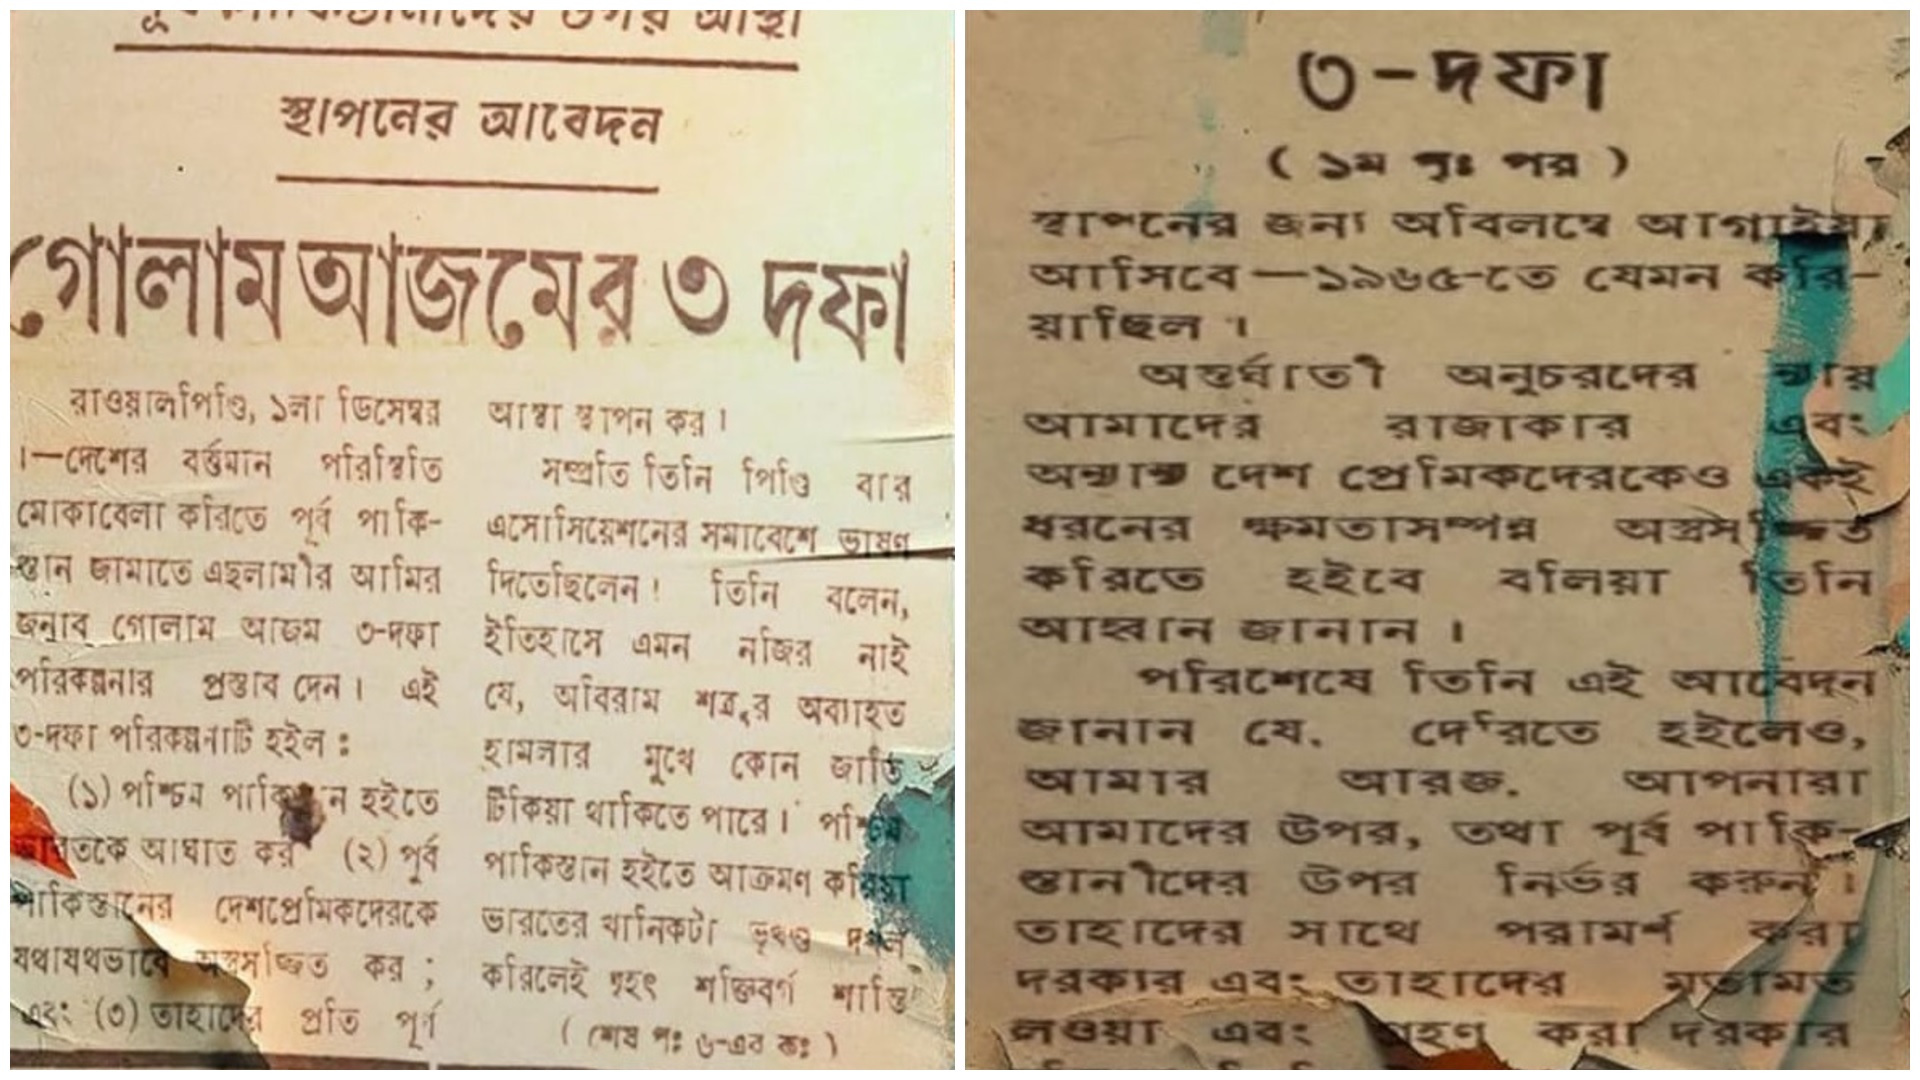 স্থাপনের আবেদন
গোলাম আজমের ৩ দফা
রাওয়ালপিণ্ডি, ১লা ডিসেম্বর
।—দেশের বর্ত্তমান পরিস্থিতি
মোকাবেলা করিতে পূর্ব পাকি-
স্তান জামাতে এছলামীর আমির
জনাব গোলাম আজম ৩-দফা
পরিকল্পনার প্রস্তাব দেন। এই
৩-দফা পরিকল্পনাটি হইল :
(১) পশ্চিম পাকিস্তান হইতে
ভারতকে আঘাত কর (২) পূর্ব
পাকিস্তানের দেশপ্রেমিকদেরকে
যথাযথভাবে অস্ত্রসজ্জিত কর ;
এবং (৩) তাহাদের প্রতি পূর্ণ
আস্থা স্থাপন কর।
সম্প্রতি তিনি পিণ্ডি বার
এসোসিয়েশনের সমাবেশে ভাষণ
দিতেছিলেন। তিনি বলেন,
ইতিহাসে এমন নজির নাই
যে, অবিরাম শত্রুর অব্যাহত
হামলার মুখে কোন জাতি
টিকিয়া থাকিতে পারে। পশ্চিম
পাকিস্তান হইতে আক্রমণ করিয়া
ভারতের খানিকটা ভূখণ্ড দখল
করিলেই বৃহৎ শক্তিবর্গ শান্তি
( শেষ পৃঃ ৬-এর কঃ )
৩-দফা
( ১ম পৃঃ পর )
স্থাপনের জন্য অবিলম্বে আগাইয়া
আসিবে—১৯৬৫-তে যেমন করি-
য়াছিল ।
অন্তর্ঘাতী অনুচরদের ন্যায়
আমাদের রাজাকার এবং
অন্যান্য দেশ প্রেমিকদেরকেও একই
ধরনের ক্ষমতাসম্পন্ন অস্ত্রসজ্জিত
করিতে হইবে বলিয়া তিনি
আহ্বান জানান ।
পরিশেষে তিনি এই আবেদন
জানান যে, দেরিতে হইলেও,
আমার আরজ, আপনারা
আমাদের উপর, তথা পূর্ব পাকি-
স্তানীদের উপর নির্ভর করুন ।
তাহাদের সাথে পরামর্শ করা
দরকার এবং তাহাদের মতামত
লওয়া এবং গ্রহণ করা দরকার